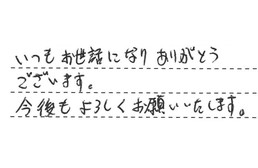 いつもお世話になりありがとう
ございます。
今後もよろしくお願いいたします。